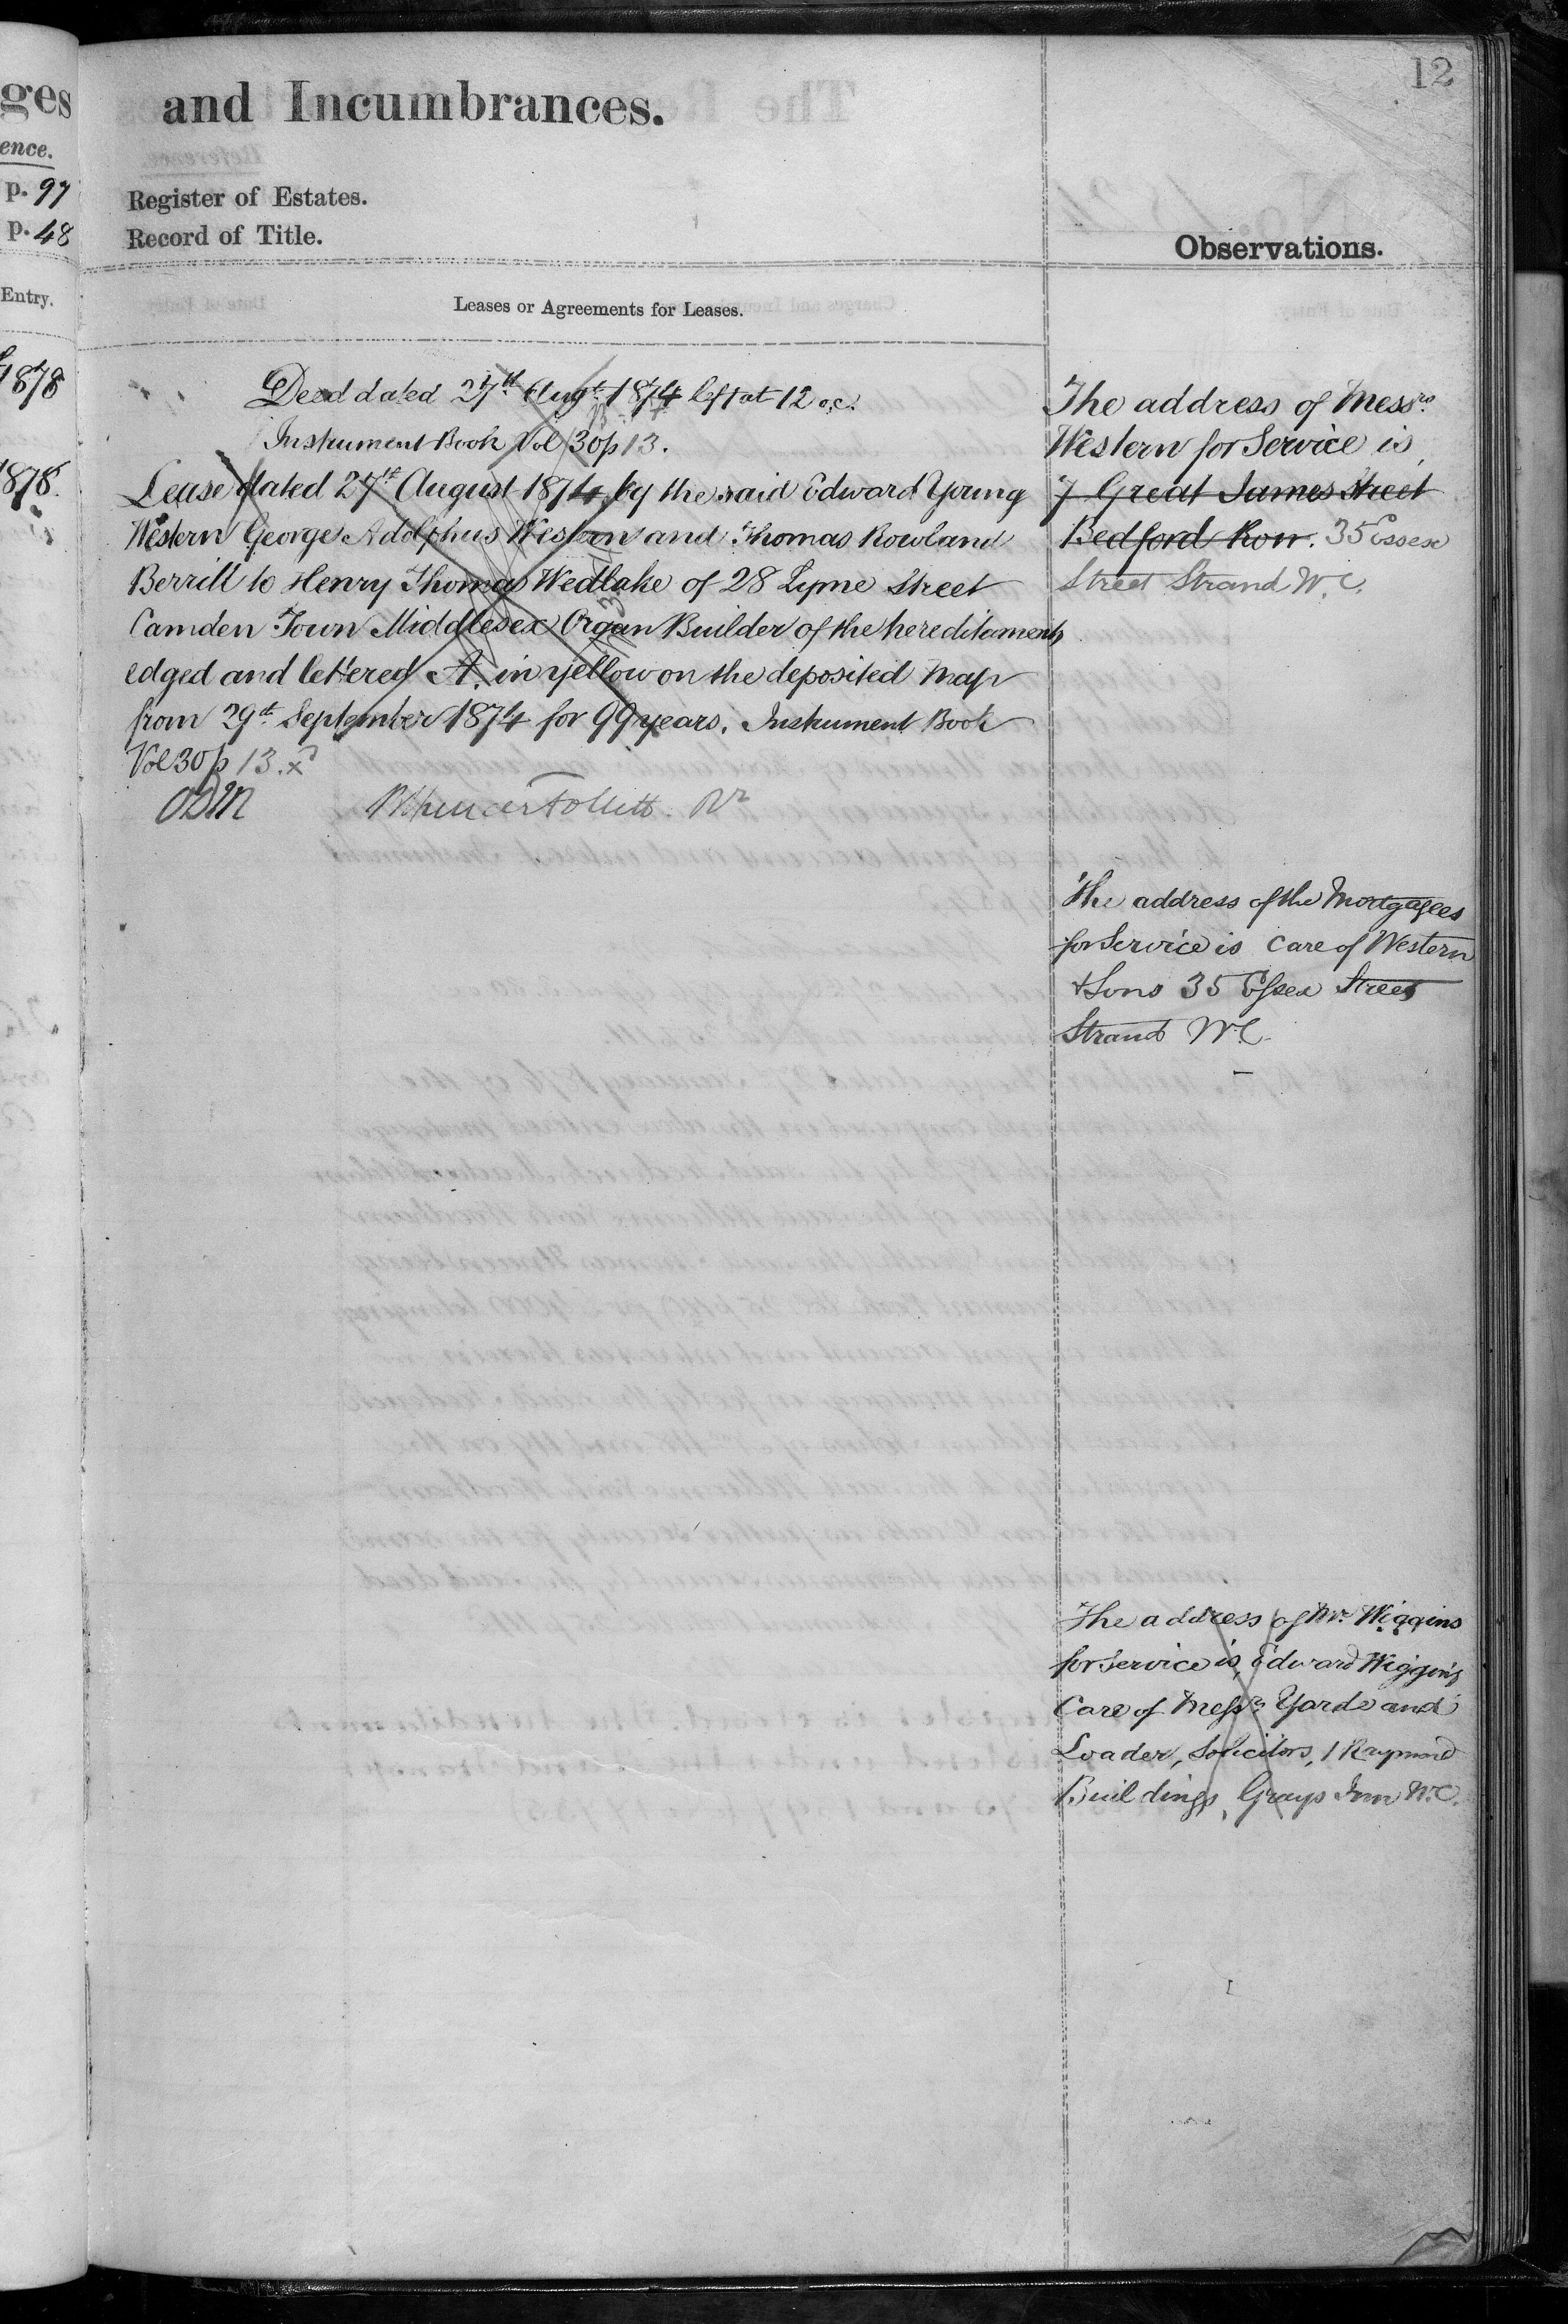 12
ges
and Incumbrances.
ence.
p. 97
Register of Estates.
p. 48
Record of Title.
Observations.
Entry.
Leases or Agreements for Leases.
1878
1878.
Deed dated 27th Augt. 1874 left at 12 o,c.
Instrument Book Vol 30 p 13.
Lease dated 27th August 1874 by the said Edward Young
Western George Adolphus Western and Thomas Rowland
Berrill to Henry Thomas Wedlake of 28 Lyme Street
Camden Town Middlesex Organ Builder of the hereditaments
edged and lettered A. in yellow on the deposited Map
from 29th September 1874 for 99 years. Instrument Book
Vol 30 p 13. x
The address of Messrs.
Western for Service is
7 Great James Street
Bedford Row. 35 Essex
Street Strand W.C.
The address of the Mortgagees
for Service is care of Western
& Sons 35 Essex Street
Strand W.C.
The address of Mr. Wiggins
for service is, Edward Wiggins
Care of Messrs Yarde and
Loader, Solicitors, 1 Raymond
Buildings, Grays Inn W.C.